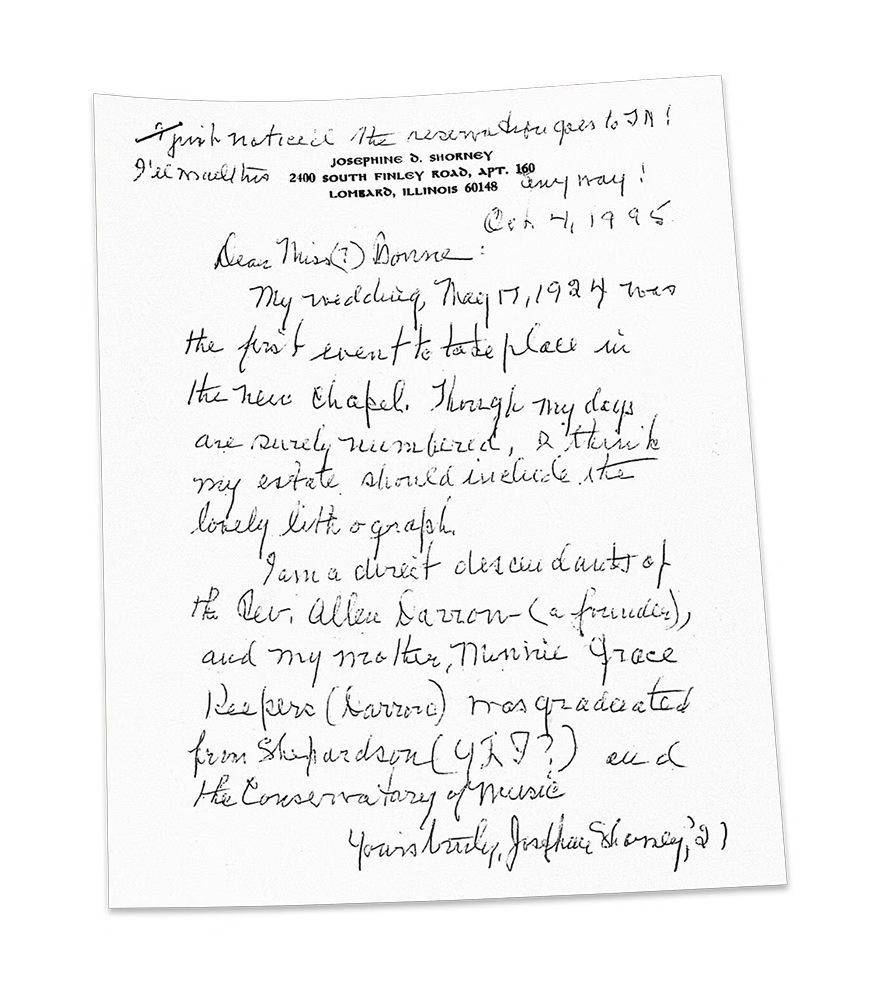 I just noticed the reservation goes to TN!
JOSEPHINE D. SHORNEY
I'll mail this 2400 SOUTH FINLEY ROAD, APT. 160
LOMBARD, ILLINOIS 60148 anyway!
Oct 4, 1995
Dear Miss(?) Bonne:
My wedding, May 17, 1924 was
the first event to take place in
the new chapel. Though my days
are surely numbered, I think
my estate should include the
lovely lithograph.
I am a direct descendants of
the Rev. Allen Darrow (a founder),
and my mother, Minnie Grace
Keepers (Darrow) was graduated
from Shepardson (YLI?) and
the Conservatory of Music
Yours truly, Josephine Shorney, '27